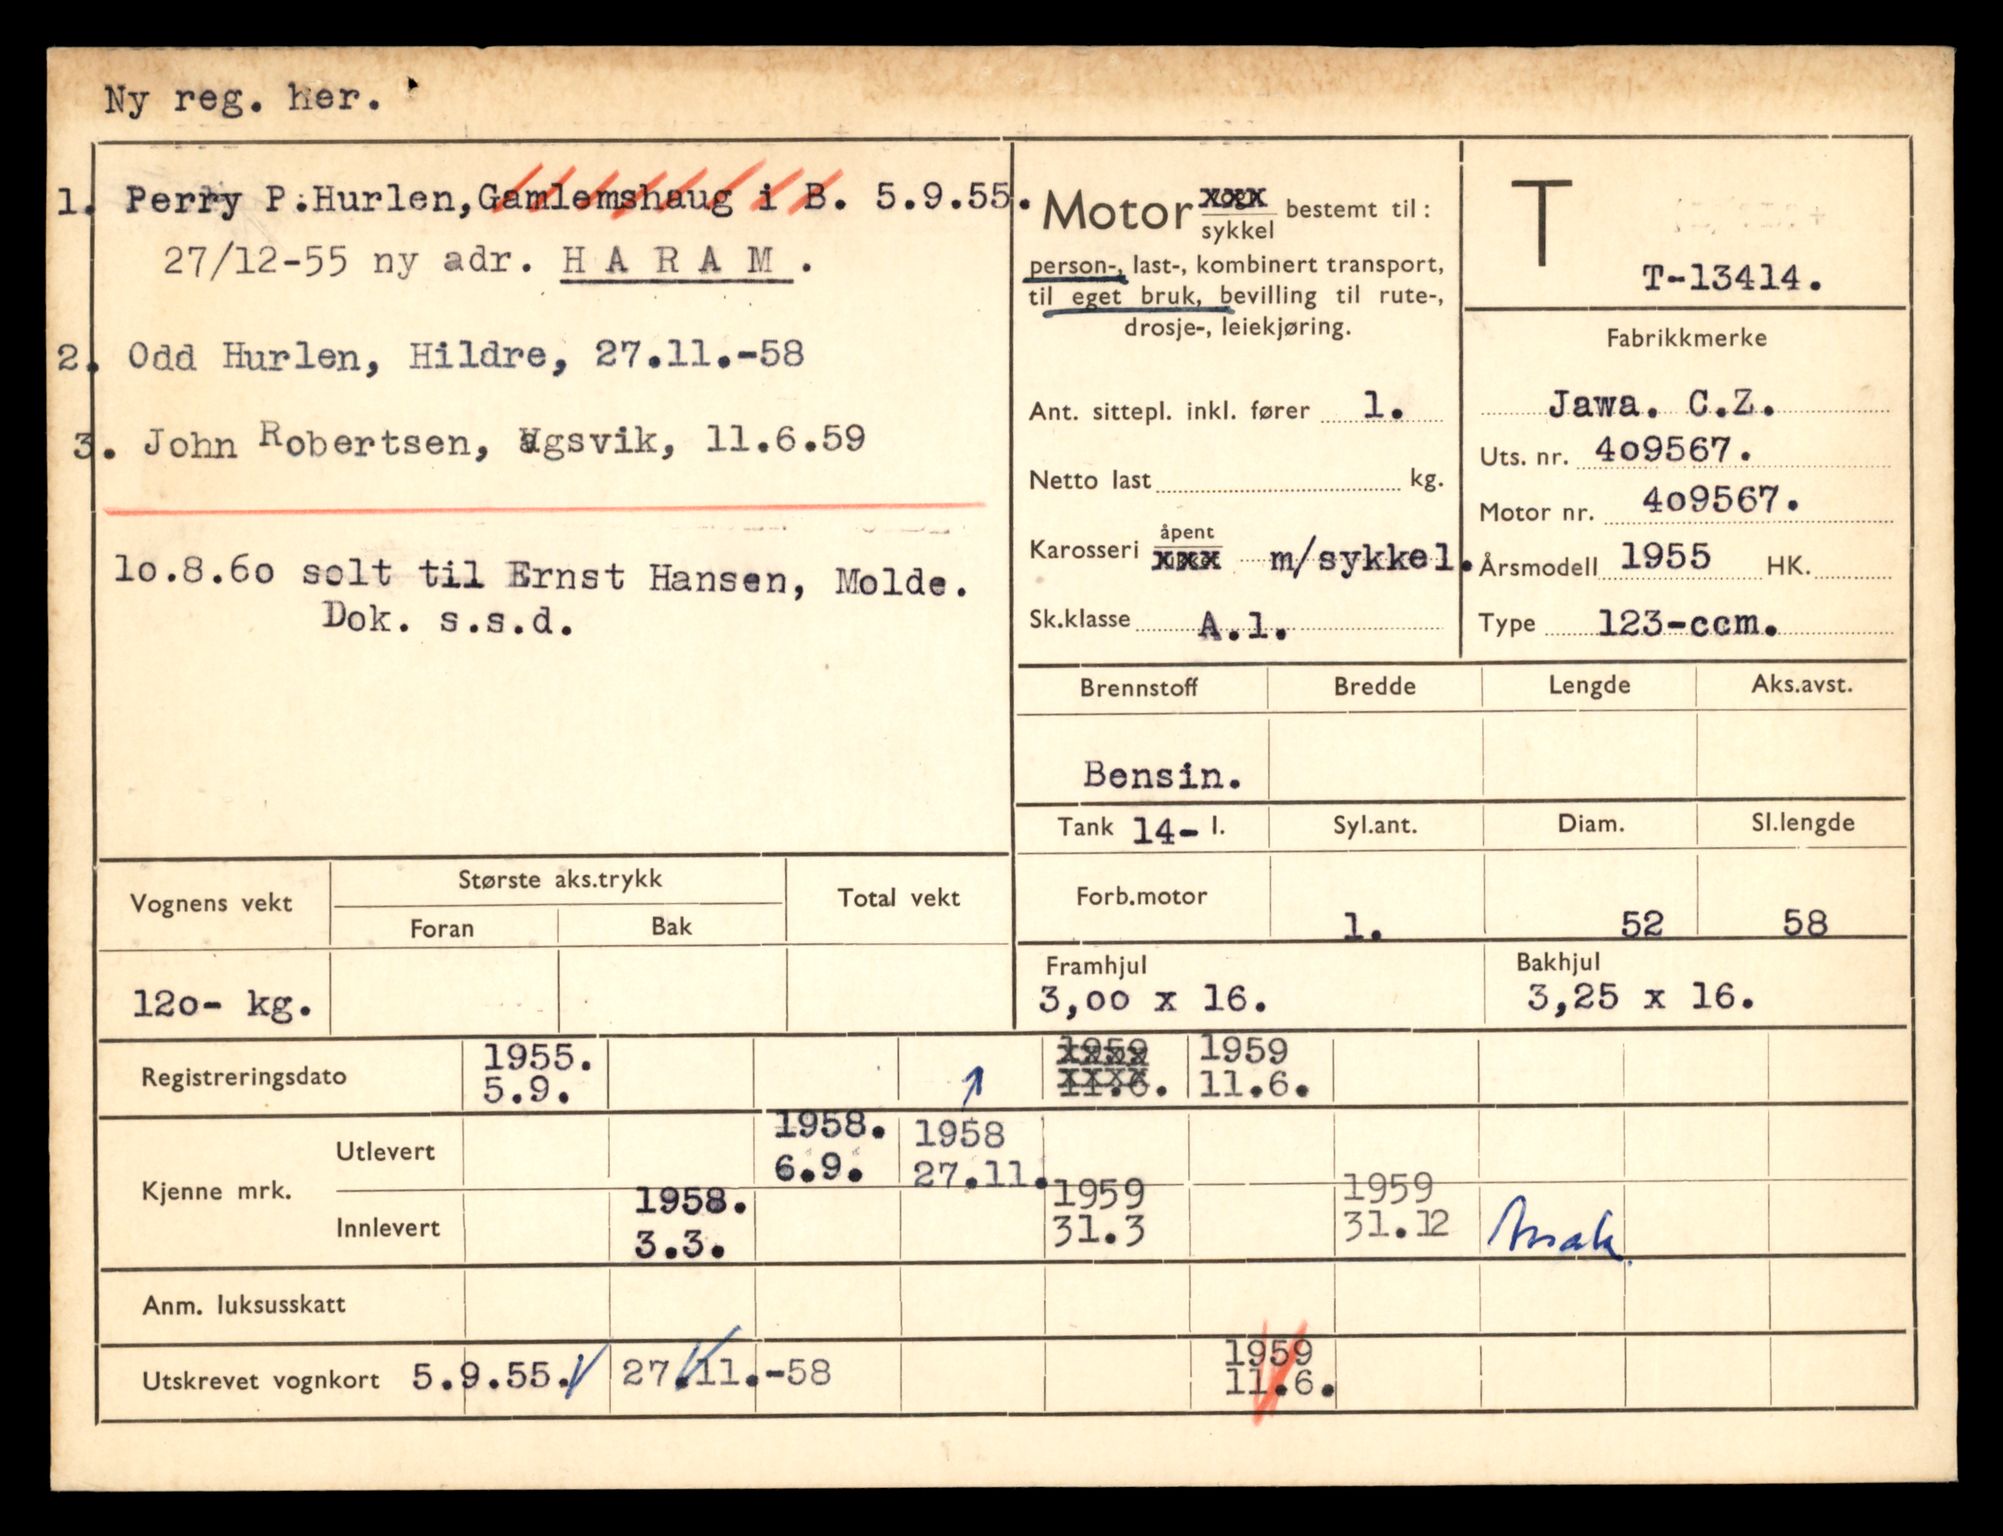 Ny reg. her.
1. Perry P. Hurlen, Gamlemshaug i B. 5.9.55.
27/12-55 ny adr. H A R A M .
2. Odd Hurlen, Hildre, 27.11.-58
3. John Robertsen, Vågsvik, 11.6.59
10.8.60 solt til Ernst Hansen, Molde.
Dok. s.s.d.
Motor vogn sykkel bestemt til :
person-, last-, kombinert transport,
til eget bruk, bevilling til rute-,
drosje-, leiekjøring.
Ant. sittepl. inkl. fører 1.
Netto last kg.
Karosseri åpent xxx m/sykkel.
Sk.klasse A.1.
T
T-13414.
Fabrikkmerke
Jawa. C.Z.
Uts. nr. 409567.
Motor nr. 409567.
Årsmodell 1955 HK.
Type 123-ccm.
Brennstoff Bredde Lengde Aks.avst.
Bensin.
Tank 14- l. Syl.ant. Diam. Sl.lengde
Forb.motor 1. 52 58
Framhjul Bakhjul
3,00 x 16. 3,25 x 16.
Vognens vekt Største aks.trykk Total vekt
Foran Bak
120- kg.
Registreringsdato 1955. 5.9. 1959 11.6. 1959 11.6.
Kjenne mrk.
Utlevert 1958. 6.9. 1958 27.11.
Innlevert 1958. 3.3. 1959 31.3 1959 31.12
Anm. luksusskatt
Utskrevet vognkort 5.9.55. 27.11.-58 1959 11.6.